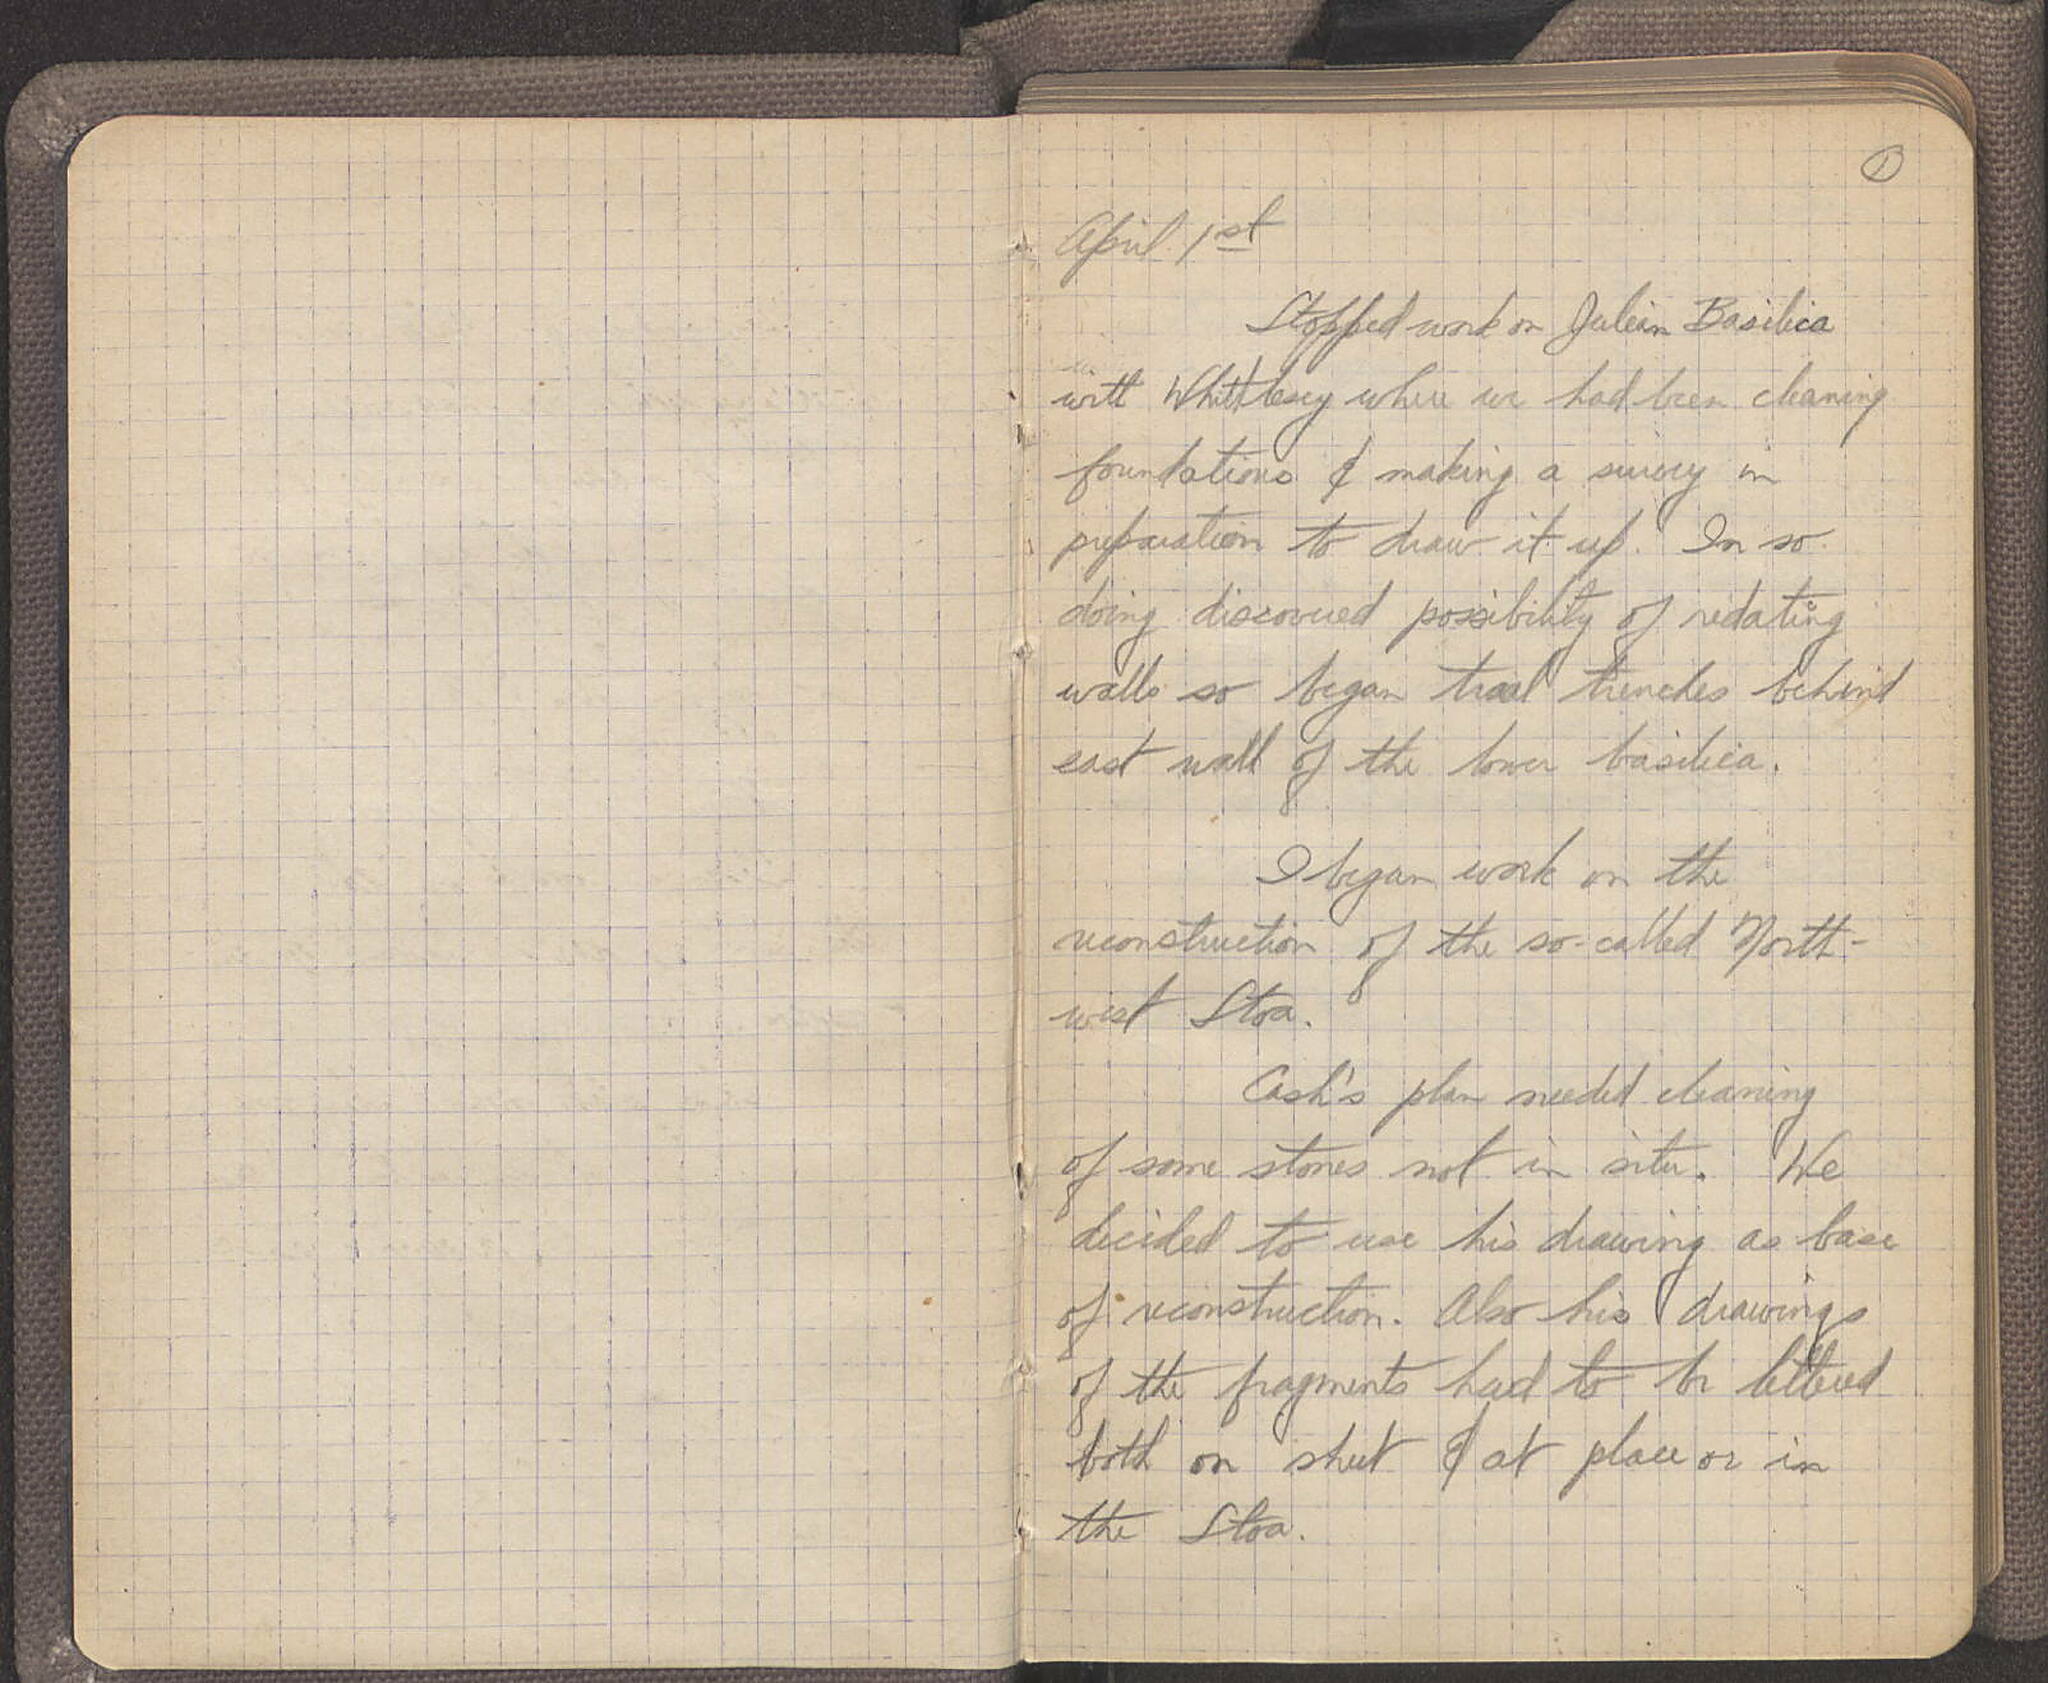 1
April 1st
Stopped work on Julian Basilica
with Whittlesey where we had been cleaning
foundations & making a survey in
preparation to draw it up. In so
doing discovered possibility of redating
walls so began trial trenches behind
east wall of the lower basilica.
I began work on the
reconstruction of the so-called North-
west Stoa.
Cash's plan needed cleaning
of some stones not in situ. We
decided to use his drawing as base
of reconstruction. Also his drawings
of the fragments had to be lettered
both on sheet & at place or in
the Stoa.